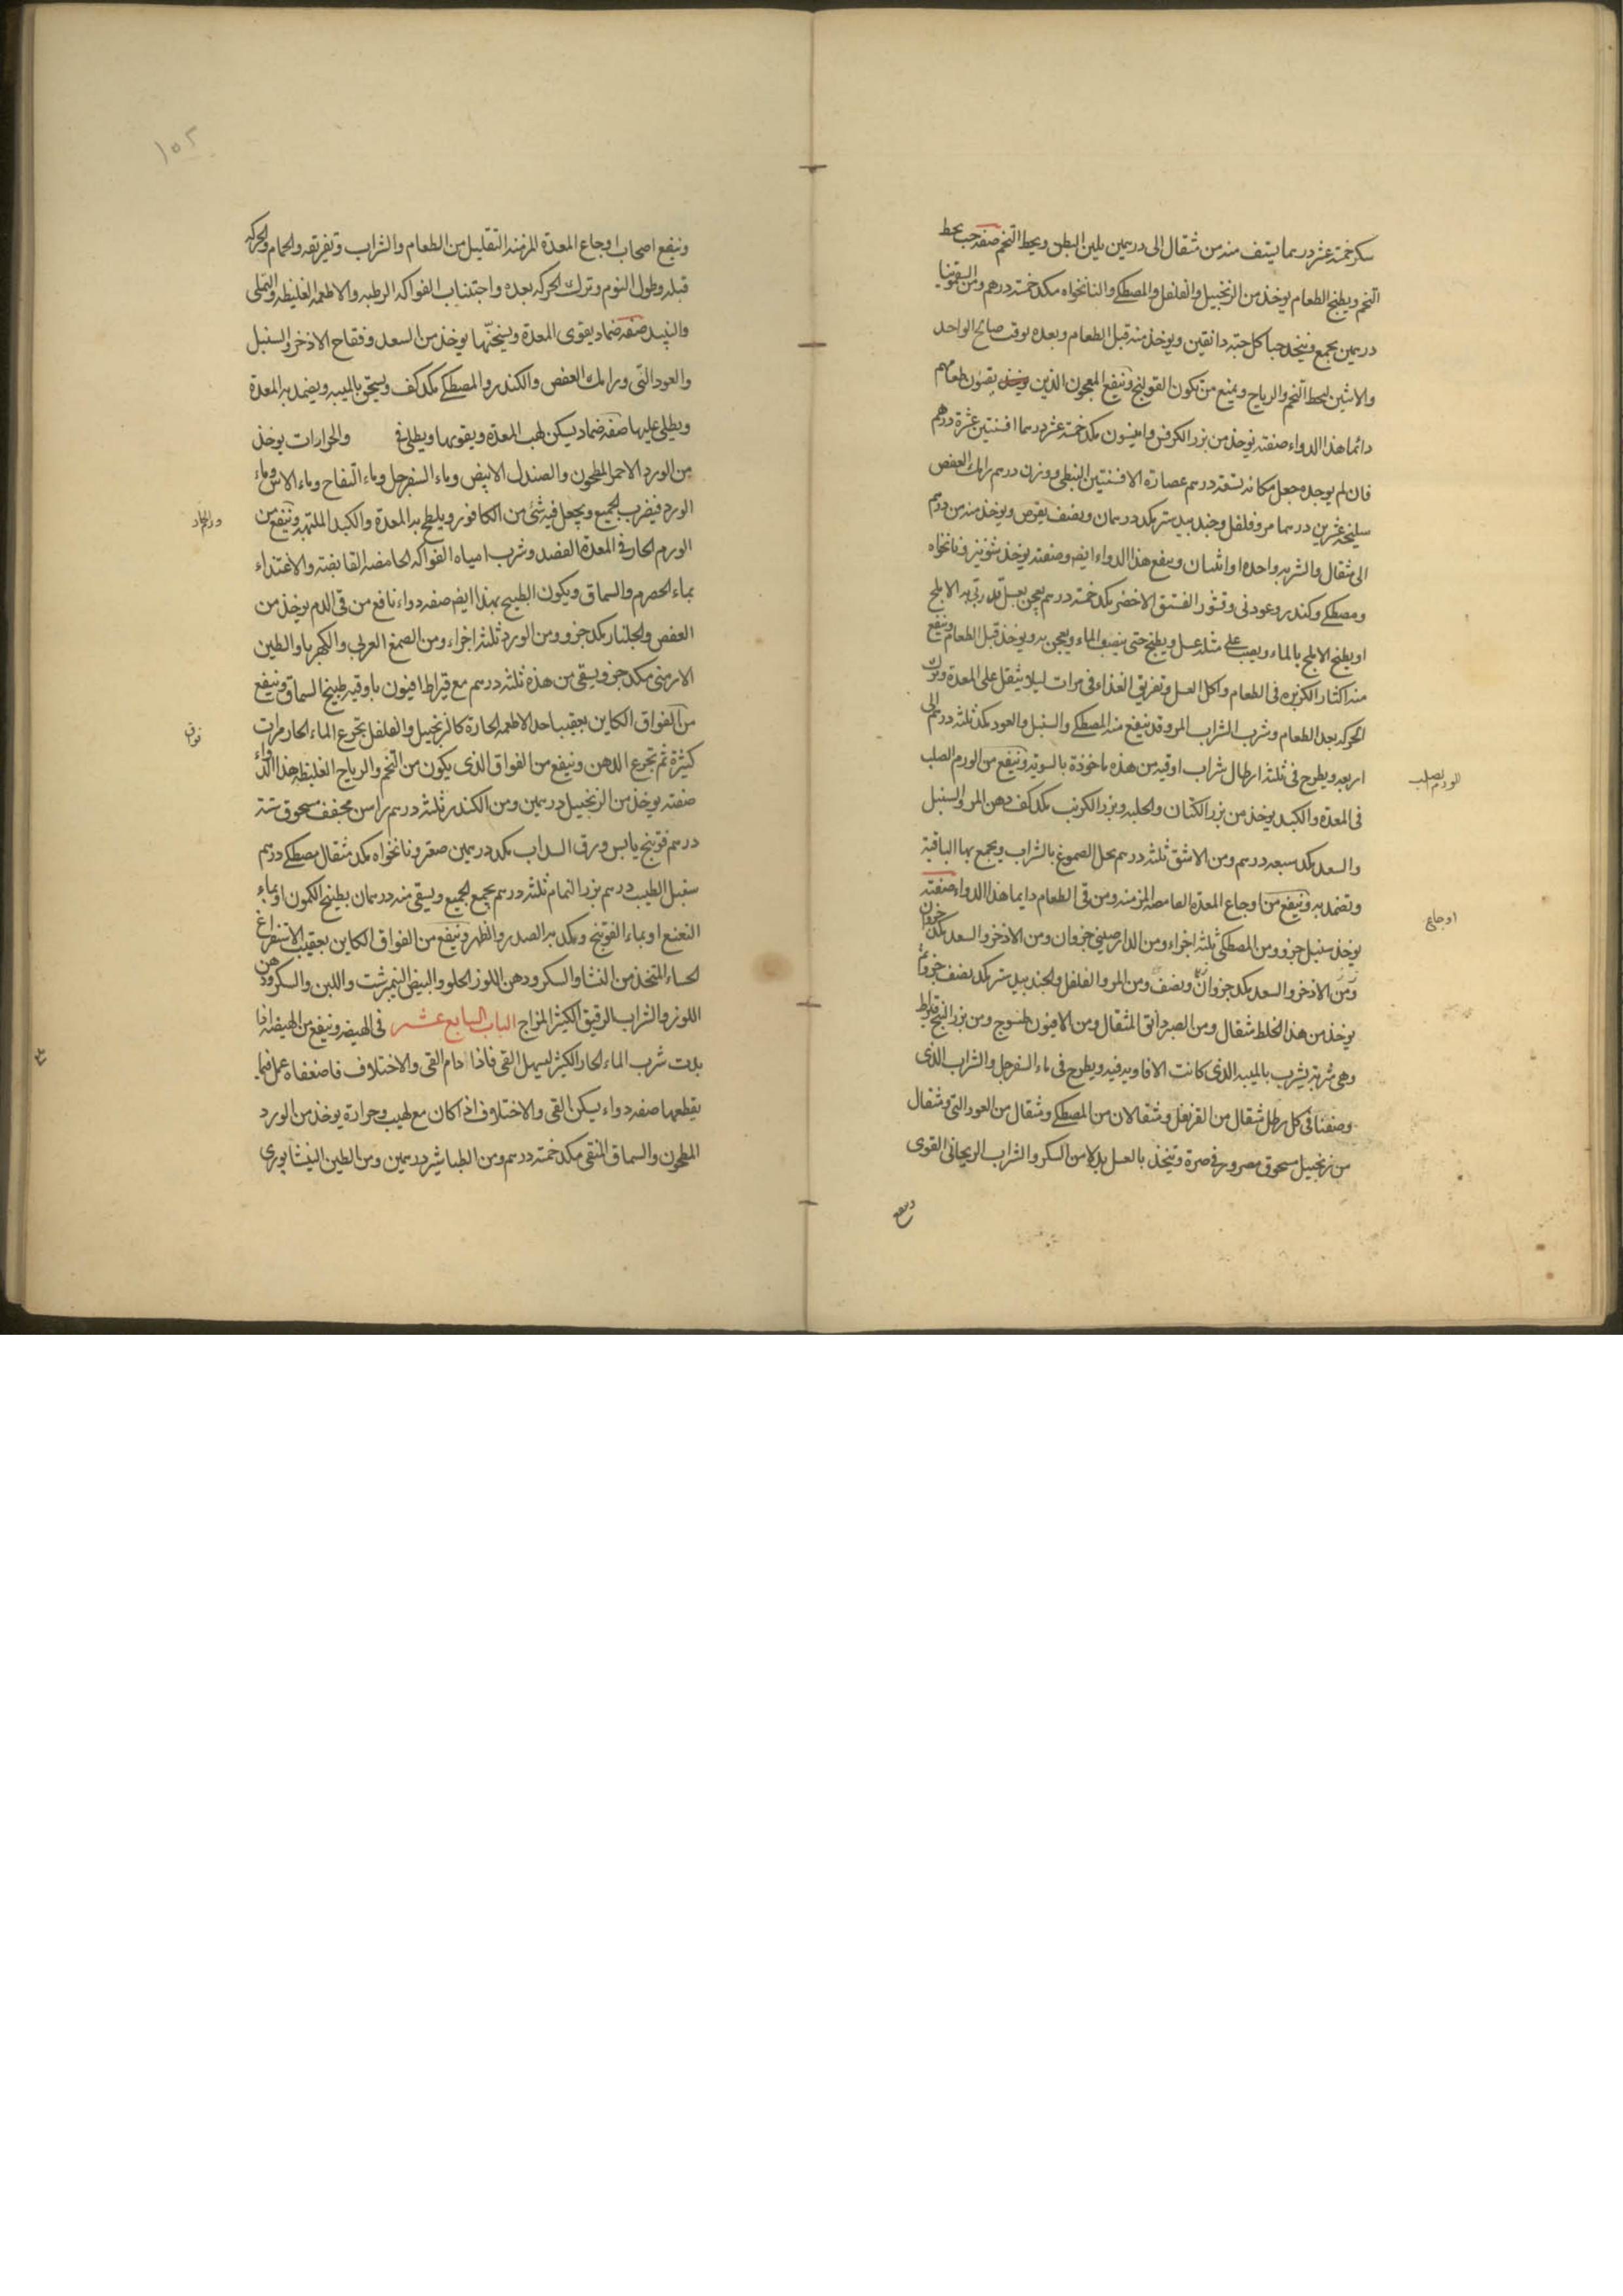 سكر خمسة عشر درهما يستف منه من مثقال الى درهمين يلين البطن ويحط التخم صفة حب يحط
التخم ويطبخ الطعام يوخذ من الزنجبيل والفلفل والمصطكى والنانخواه مكد خمسة دراهم ومن السقمونيا
درهمين يجمع ويتخذ حبا كل حبة دانقين ويوخذ منه قبل الطعام وبعده بوقت صالح الواحد
والاثنين ليحط التخم والرياح ويمنع من تكون القولنج وينفع المعجون الذين يقيون طعامهم
دائما هذا الدواء صفته يوخذ من بزر الكرفس وانيسون مكد خمسة عشر درهما افسنتين عشرة دراهم
فان لم يوجد جعل مكانه تسعة دراهم عصارة الافسنتين النبطى ووزن درهم رامك العفص
سليخة عشرين درهما مر وفلفل وجندبيدستر مكد درهمان ونصف يقرص ويوخذ منه من درهم
الى مثقال والشربه واحده او اثنتان وينفع هذا الدواء ايضا وصفته يوخذ شونيز ونانخواه
ومصطكى وكندر وعود نى وقشور الفستق الاخضر مكد خمسة دراهم يعجن بعسل قد ربى به الاملج
او يطبخ الاملج بالماء ويصب على مثله عسل ويطبخ حتى ينضب الماء ويعجن به ويوخذ قبل الطعام وينفع
منه اكثار الكزبره فى الطعام واكل العسل وتفريق الغذاء فى مرات ليلا يثقل على المعدة وترك
الحركه بعد الطعام وشرب الشراب المر وقد ينفع منه المصطكى والسنبل والعود مكد ثلثه دراهم الى
اربعه ويطرح فى ثلثه ارطال شراب اوقيه من هذه ماخوذة بالسويه وينفع من الورم الصلب
الورم الصلب
فى المعدة والكبد يوخذ من بزر الكتان والحلبه وبزر الكرنب مكد كف دهن المر والسنبل
والسعد مكد سبعه دراهم ومن الاشق ثلثه دراهم يحل الصموغ بالشراب ويجمع بها الباقية
وتضمد به وينفع من اوجاع المعدة الغامضه المزمنه ومن قى الطعام دايما هذا الدواء صفته
اوجاع
يوخذ سنبل جزو ومن المصطكى ثلثه اجزاء ومن الدارصينى جزوان ومن الاذخر والسعد مكد جزوان
ومن الاذخر والسعد مكد جزوان ونصف ومن المر والفلفل والجندبيدستر مكد نصف جزو ثم
يوخذ من هذا الخلط مثقال ومن الصبر دانق المثقال ومن الافيون طسوج ومن بزر البنج قيراط
وهى شربة يشرب بالميبه الذى كانت الافاويه فيه ويطرح فى ماء السفرجل والشراب الذى
وصفنا فى كل رطل مثقال من القرنفل ومثقالان من المصطكى ومثقال من العود النى ومثقال
من زنجبيل مسحوق مصرور فى صرة ويتخذ بالعسل بدلا من السكر والشراب الريحانى القوى
وينفع
١٥٢
وينفع اصحاب اوجاع المعدة المزمنه التقليل من الطعام والشراب وتفريقه والحمام والحركه
قبله وطول النوم وترك الحركه بعده واجتناب الفواكه الرطبه والاطعمه الغليظه والتملى
والنبيذ صفه ضماد يقوى المعدة ويسخنها يوخذ من السعد وفقاح الاذخر والسنبل
والعود النى ورامك العفص والكندر والمصطكى مكد كف ويسحق بالميبه ويضمد به المعدة
ويطلى عليها صفه ضماد يسكن لهب المعدة ويقويها ويطلى فى والحرارات يوخذ
من الورد الاحمر المطحون والصندل الابيض وماء السفرجل وماء التفاح وماء الاس وماء
الورد فيضرب الجميع ويجعل فيه شئ من الكافور ويلطخ به المعدة والكبد الملتهبه وينفع من
ورم الحار
الورم الحار فى المعدة الفصد وشرب امياه الفواكه الحامضه القابضة والاغتذاء
بماء الحصرم والسماق ويكون الطبيخ بهذا ايضا صفه دواء نافع من قى الدم يوخذ من
العفص والجلنار مكد جزو ومن الورد ثلثه اجزاء ومن الصمغ العربى والكهربا والطين
الارمنى مكد جزو ويسقى من هذه ثلثه دراهم مع قيراط افيون باوقيه طبيخ السماق وينفع
من الفواق الكاين بعقب احد الاطعمه الحارة كالزنجبيل والفلفل تجرع الماء الحار مرات
فواق
كثيرة ثم تجرع الدهن وينفع من الفواق الذى يكون من التخم والرياح الغليظه هذا الدواء
صفته يوخذ من الزنجبيل درهمين ومن الكندر ثلثه دراهم راسن مجفف مسحوق ستة
دراهم فوتنج يابس وورق السداب مكد درهمين صعتر ونانخواه مكد مثقال مصطكى درهم
سنبل الطيب درهم بزر النمام ثلثه دراهم يجمع الجميع ويسقى منه درهمان بطبيخ الكمون او بماء
النعنع او بماء الفوتنج ويكمد به الصدر والظهر وينفع من الفواق الكاين بعقيب الاستفراغ
الحساء المتخذ من النشا والسكر ودهن اللوز الحلو والبيض النيمبرشت واللبن والسكر ودهن
اللوز والشراب الرقيق الكثير المزاج الباب السابع عشر فى الهيضه وينفع من الهيضه اذا
بدت شرب الماء الحار الكثير ليسهل القى فاذا دام القى والاختلاف فاضعفاه عمل فيما
يقطعهما صفه دواء يسكن القى والاختلاف اذا كان مع لهيب وحرارة يوخذ من الورد
المطحون والسماق المنقى مكد خمسه دراهم ومن الطباشير درهمين ومن الطين النيشابورى